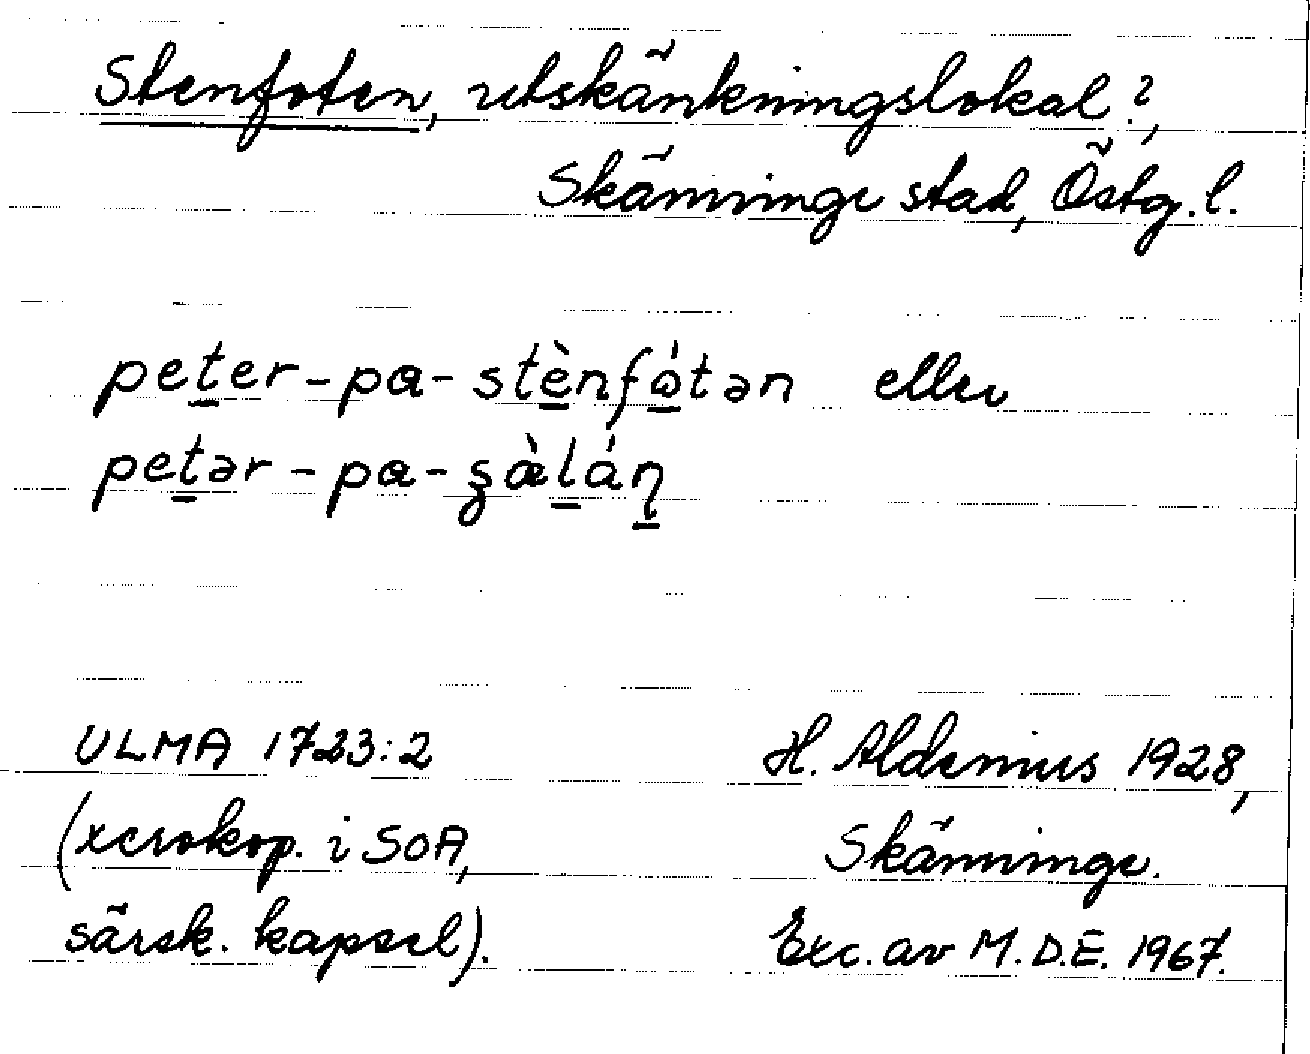 Stenfoten, utskänkningslokal?,
Skänninge stad, Östg.l.
peter-pa-stènfótən eller
petər-pa-ʂàlán̡
ULMA 1723:2
H. Aldemius 1928,
(xerokop. i SOA,
Skänninge.
särsk. kapsel).
Exc. av M.D.E. 1967.